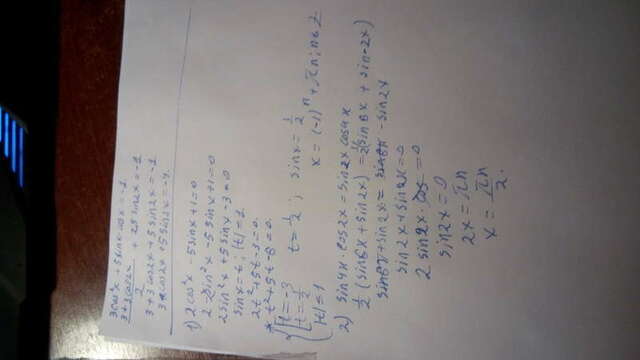 3cos²x + 5sinx cosx = -1
3+3cos2x/2 + 5sin2x/2 = -1
3 + 3cos2x + 5sin2x = -1
3cos2x + 5sin2x = -4.
1) 2cos²x - 5sinx + 1 = 0
2 - 2sin²x - 5sinx + 1 = 0
2sin²x + 5sinx - 3 = 0
sinx = t; |t| ≤ 1.
2t² + 5t - 3 = 0.
t² + 5t - 6 = 0.
t = -3
t = 1/2
|t| ≤ 1
t = 1/2; sinx = 1/2
x = (-1)ⁿ + πn; n ∈ Z
2) sin4x · cos2x = sin2x cos4x
1/2 (sin6x + sin2x) = 1/2 (sin6x + sin-2x)
sin6x + sin2x = sin6x - sin2x
sin2x + sin2x = 0
2 sin2x · cos = 0
sin2x = 0
2x = πn
x = πn/2.